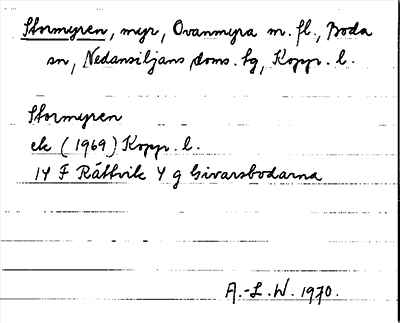 Stormyren, myr, Ovanmyra m. fl., Boda
sn, Nedansiljans doms. hg, Kopp. l.
Stormyren
ek (1969) Kopp. l.
14 F Rättvik 4 g Givarsbodarna
A.-L. W. 1970.